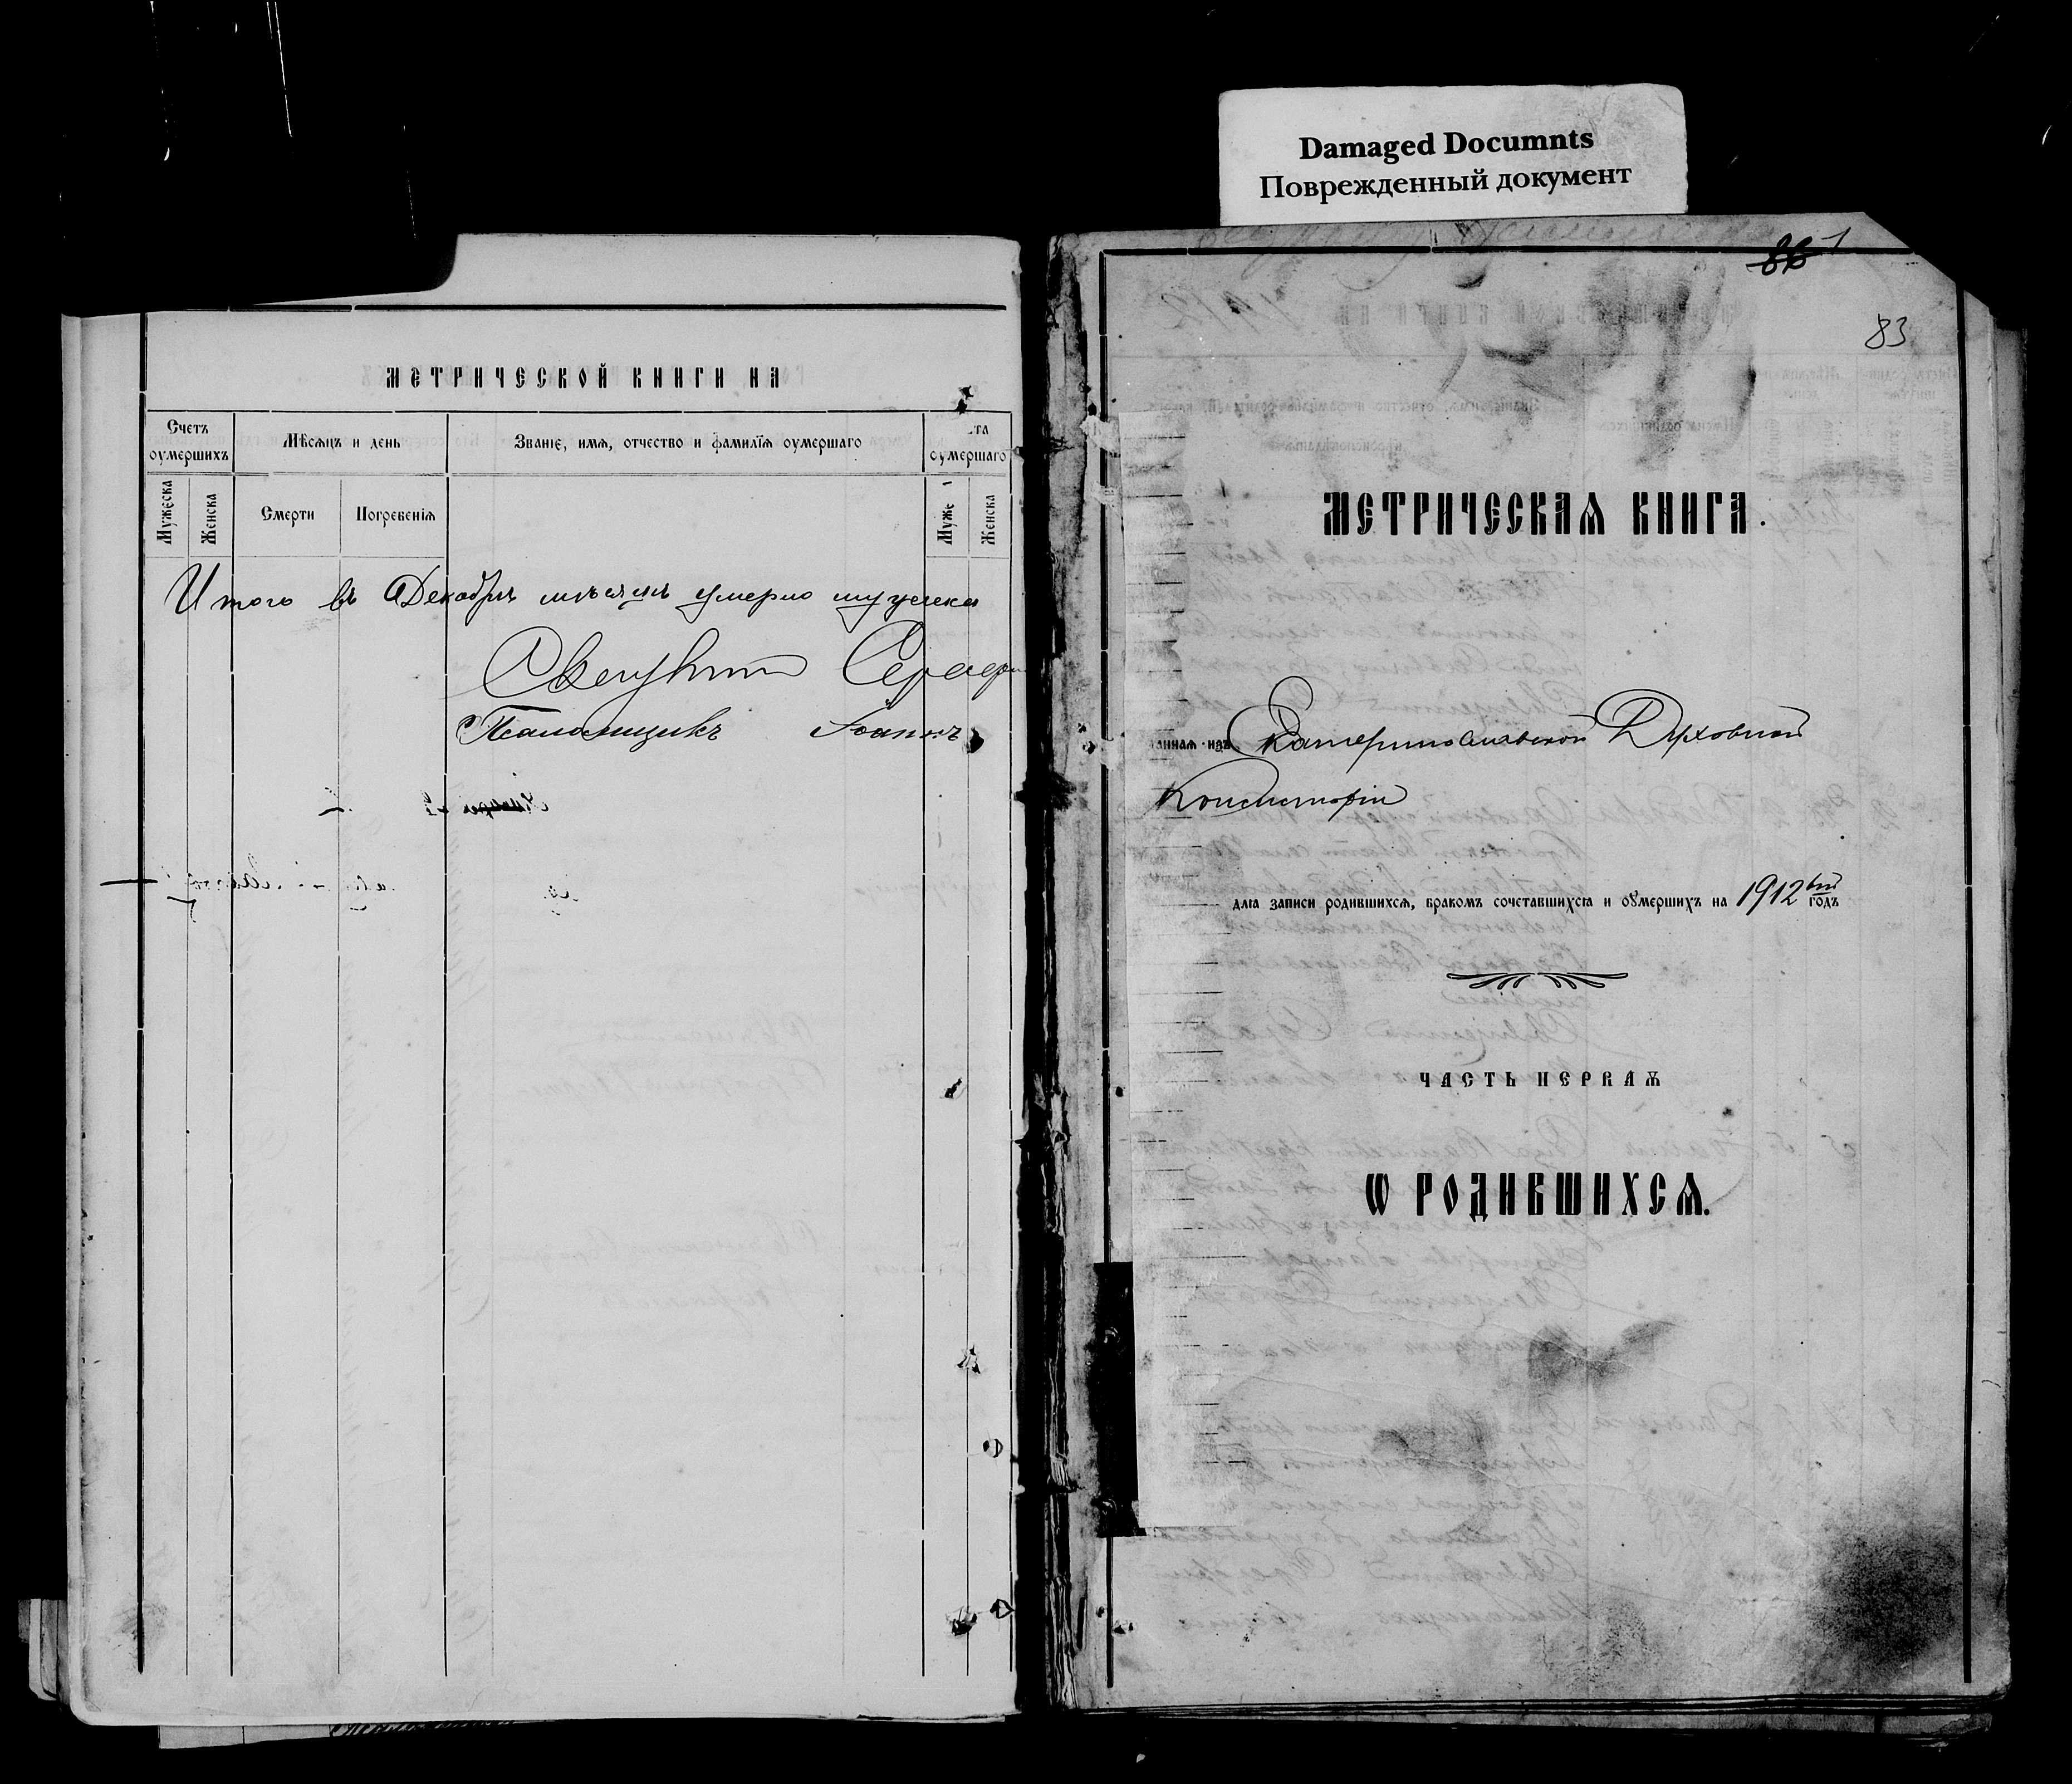 Damaged Documnts
Поврежденный документ
МЕТРИЧЕСКОЙ КНИГИ НА
Счетъ оумершихъ
Мѣсяцъ и день
Званіе, имя, отчество и фамилїя оумершаго
та оумершаго
Мужеска
Женска
Смерти
Погребенїя
Муже
Женска
Итого въ Декабрѣ мѣсяцѣ умерло мужеска
Священникъ
Псаломщикъ Іоаннъ
86 1
83
МЕТРИЧЕСКАЯ КНИГА.
анная изъ Екатеринославской Духовной
Консисторіи
для записи родившихся, бракомъ сочетавшихся и оумершихъ на 1912 вый годъ
ЧАСТЬ ПЕРВАЯ
Ѡ РОДИВШИХСЯ.